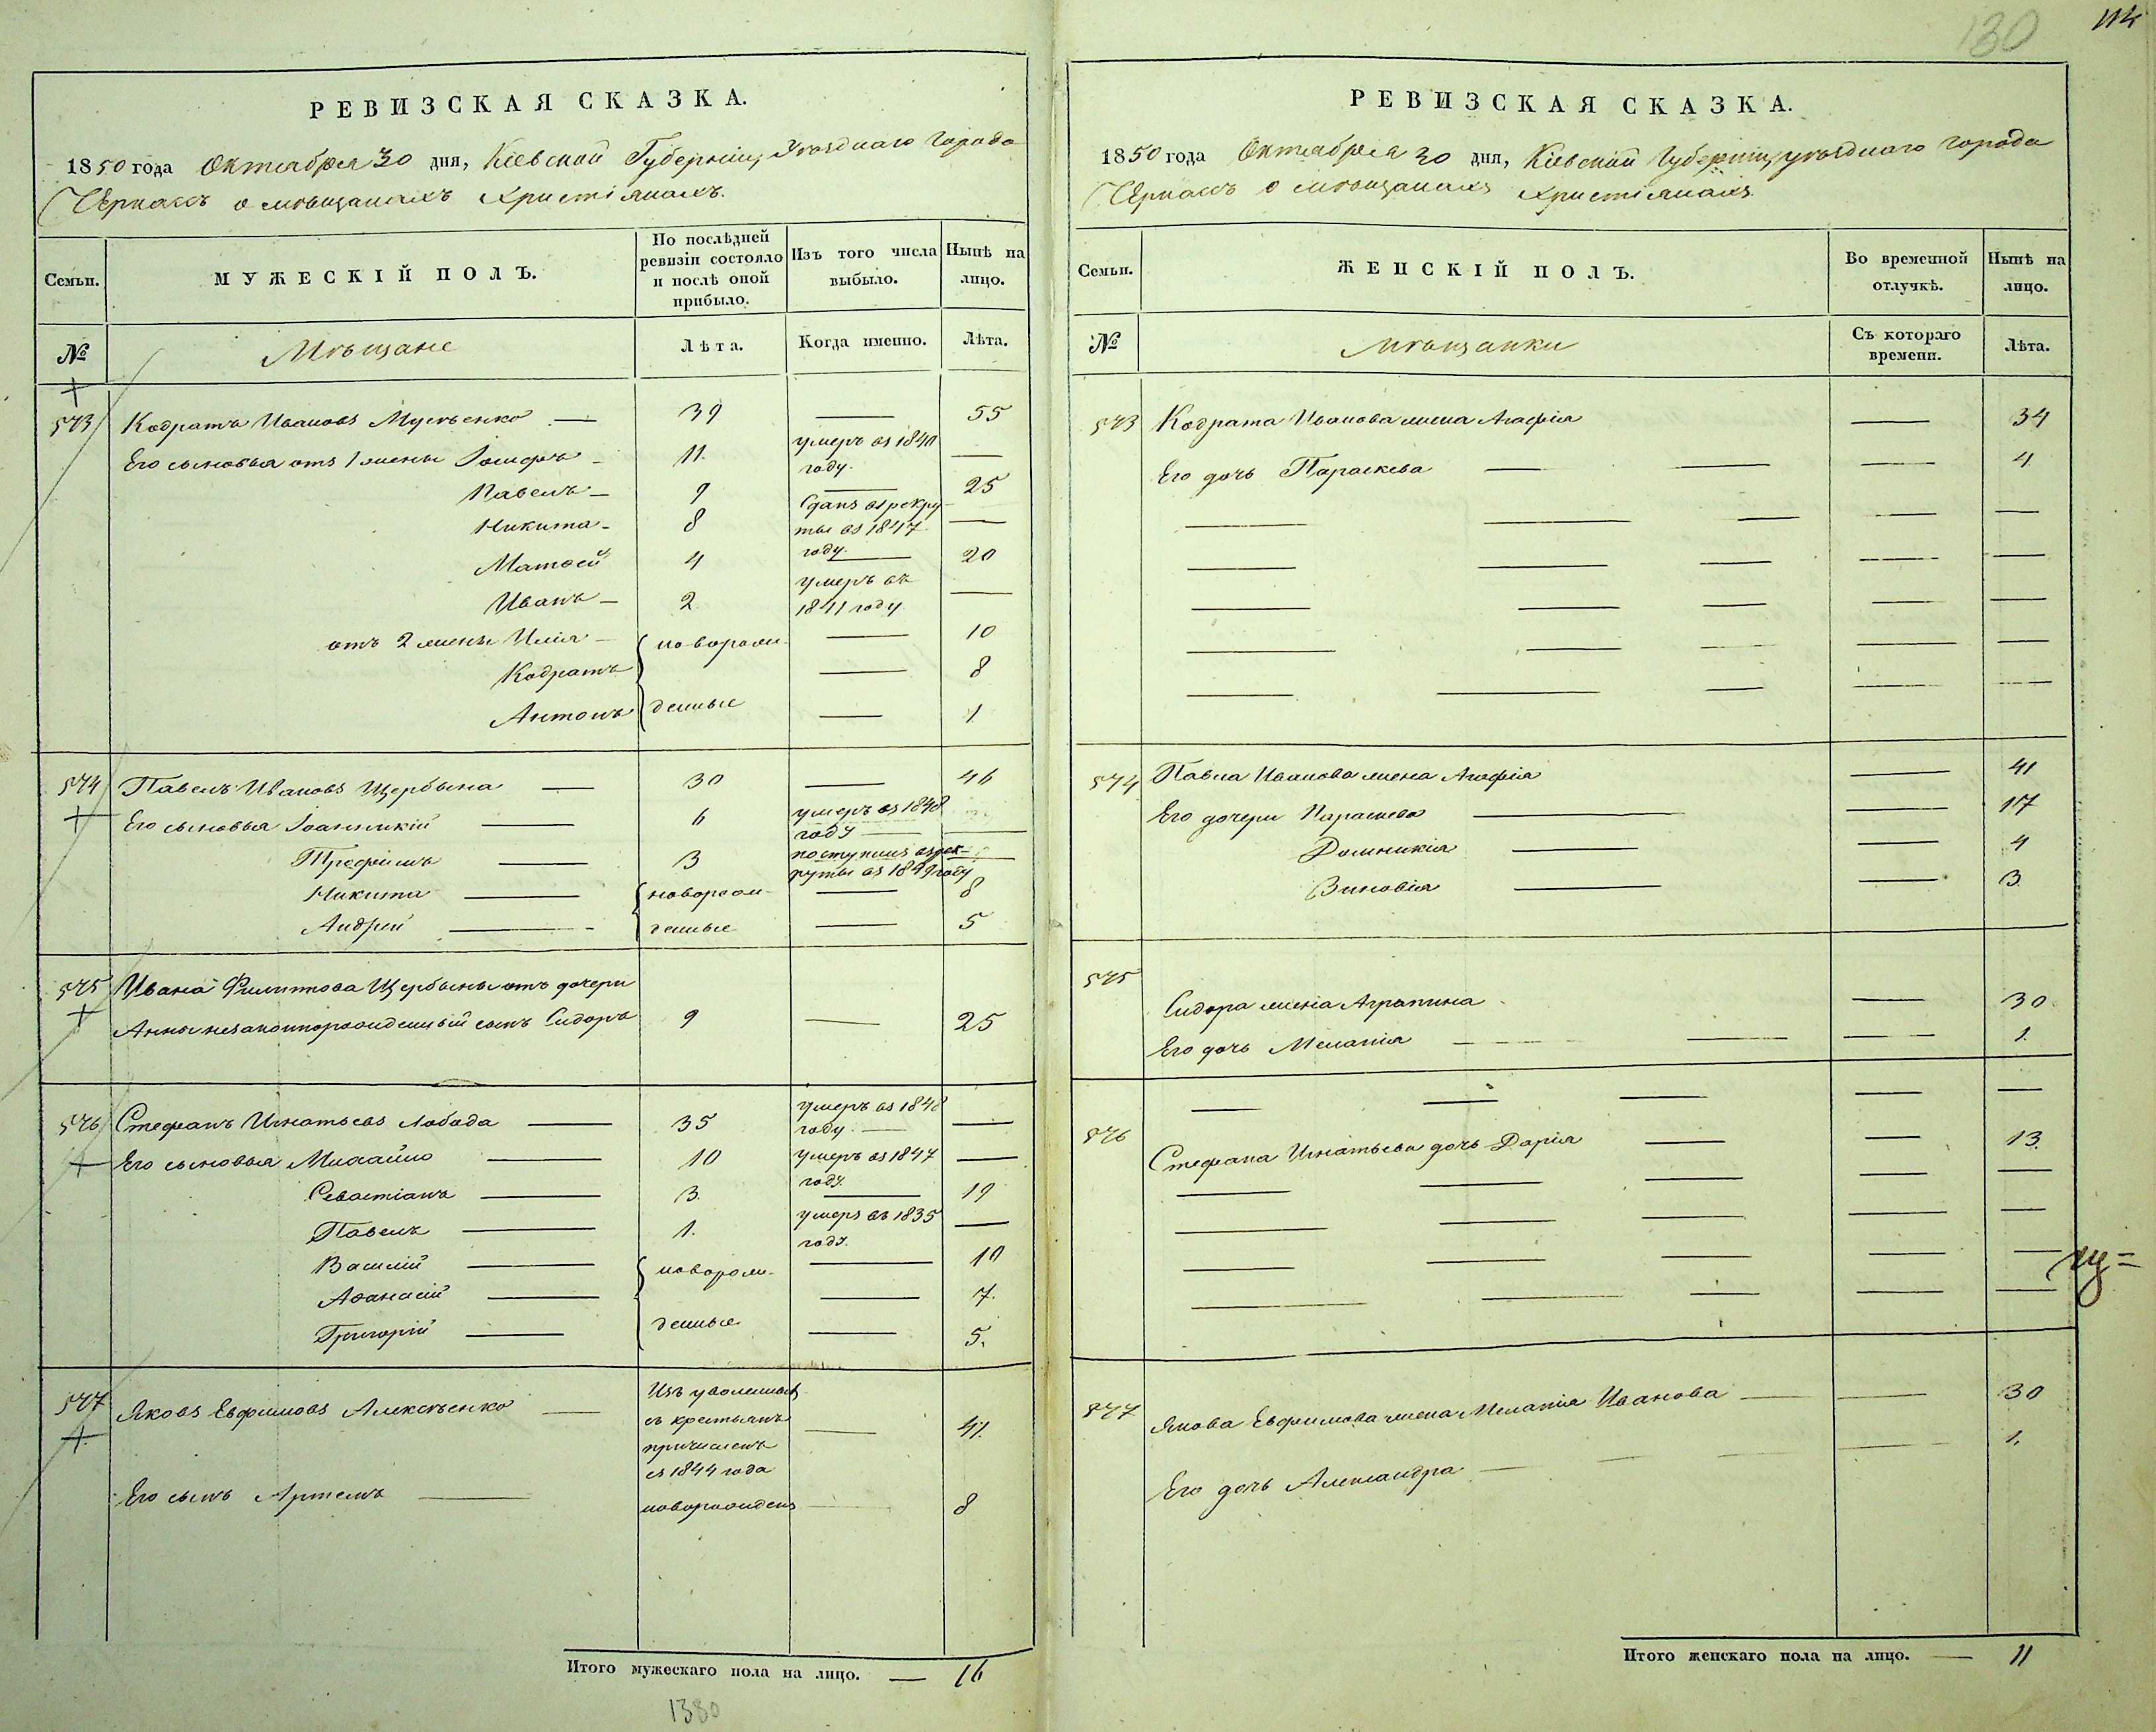 130
114
РЕВИЗСКАЯ СКАЗКА.
1850 года Октября 30 дня, Кіевской Губерніи, Уѣзднаго Города
Черкасъ о мѣщанахъ Христіянахъ.
Семьи.
МУЖЕСКІЙ ПОЛЪ.
По послѣдней ревизіи состояло и послѣ оной прибыло.
Изъ того числа выбыло.
Нынѣ на лицо.
№
Мѣщане
Лѣта.
Когда именно.
Лѣта.
573 Кодратъ Ивановъ Мусѣенко — 39 — 55
Его сыновья отъ 1 жены Іосифъ - 11. умеръ въ 1840 году. —
Павелъ — 9 — 25
Никита - 8 Сданъ въ рекруты въ 1847 году. —
Матѳей 4 — 20
Иванъ — 2. умеръ въ 1841 году —
отъ 2 жены Илія — новорож- — 10
Кодратъ — 8
Антонъ денные — 1
574 Павелъ Ивановъ Щербына — 30 — 46
Его сыновья Іоанникій — 6 умеръ въ 1848 году —
Трефимъ — 3 поступилъ въ рекруты въ 1849 году —
Никита — новорож- — 8
Андрей — денные — 5
575 Ивана Филиппова Щербыны отъ дочери
Анны незаконнорожденный сынъ Сидоръ 9 — 25
576 Стефанъ Игнатьевъ Лобода — 35 умеръ въ 1848 году. —
Его сыновья Михайло — 10 умеръ въ 1847 году. —
Севастіанъ — 3. — 19
Павелъ — 1. умеръ въ 1835 году. —
Василій — новорож- — 10
Аѳанасій — — 7.
Григорій — денные — 5.
577 Яковъ Евфимовъ Алексѣенко — Изъ уволенныхъ съ крестьянъ причисленъ съ 1844 года — 41.
Его сынъ Артемъ — новорожденъ — 8
Итого мужескаго пола на лицо. — 16
1380
РЕВИЗСКАЯ СКАЗКА.
1850 года Октября 30 дня, Кіевской Губерніи, уѣзднаго города
Черкасъ о мѣщанахъ Христіянахъ
Семьи.
ЖЕНСКІЙ ПОЛЪ.
Во временной отлучкѣ.
Нынѣ на лицо.
№
Мѣщанки
Съ котораго времени.
Лѣта.
573 Кодрата Иванова жена Агафія — 34
Его дочь Параскева — — — 4
574 Павла Иванова жена Агафія — 41
Его дочери Параскева — — 17
Домникія — — 4
Зиновія — — 3.
575
Сидора жена Агрипина — 30
Его дочь Меланія — — — 1.
576
Стефана Игнатьева дочь Дарія — — 13.
577 Якова Евфимова жена Меланія Иванова — — 30
Его дочь Александра — — — 1.
Итого женскаго пола на лицо. — 11